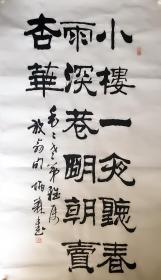 小樓一夜聽春
雨深巷明朝賣
杏華
放翁句